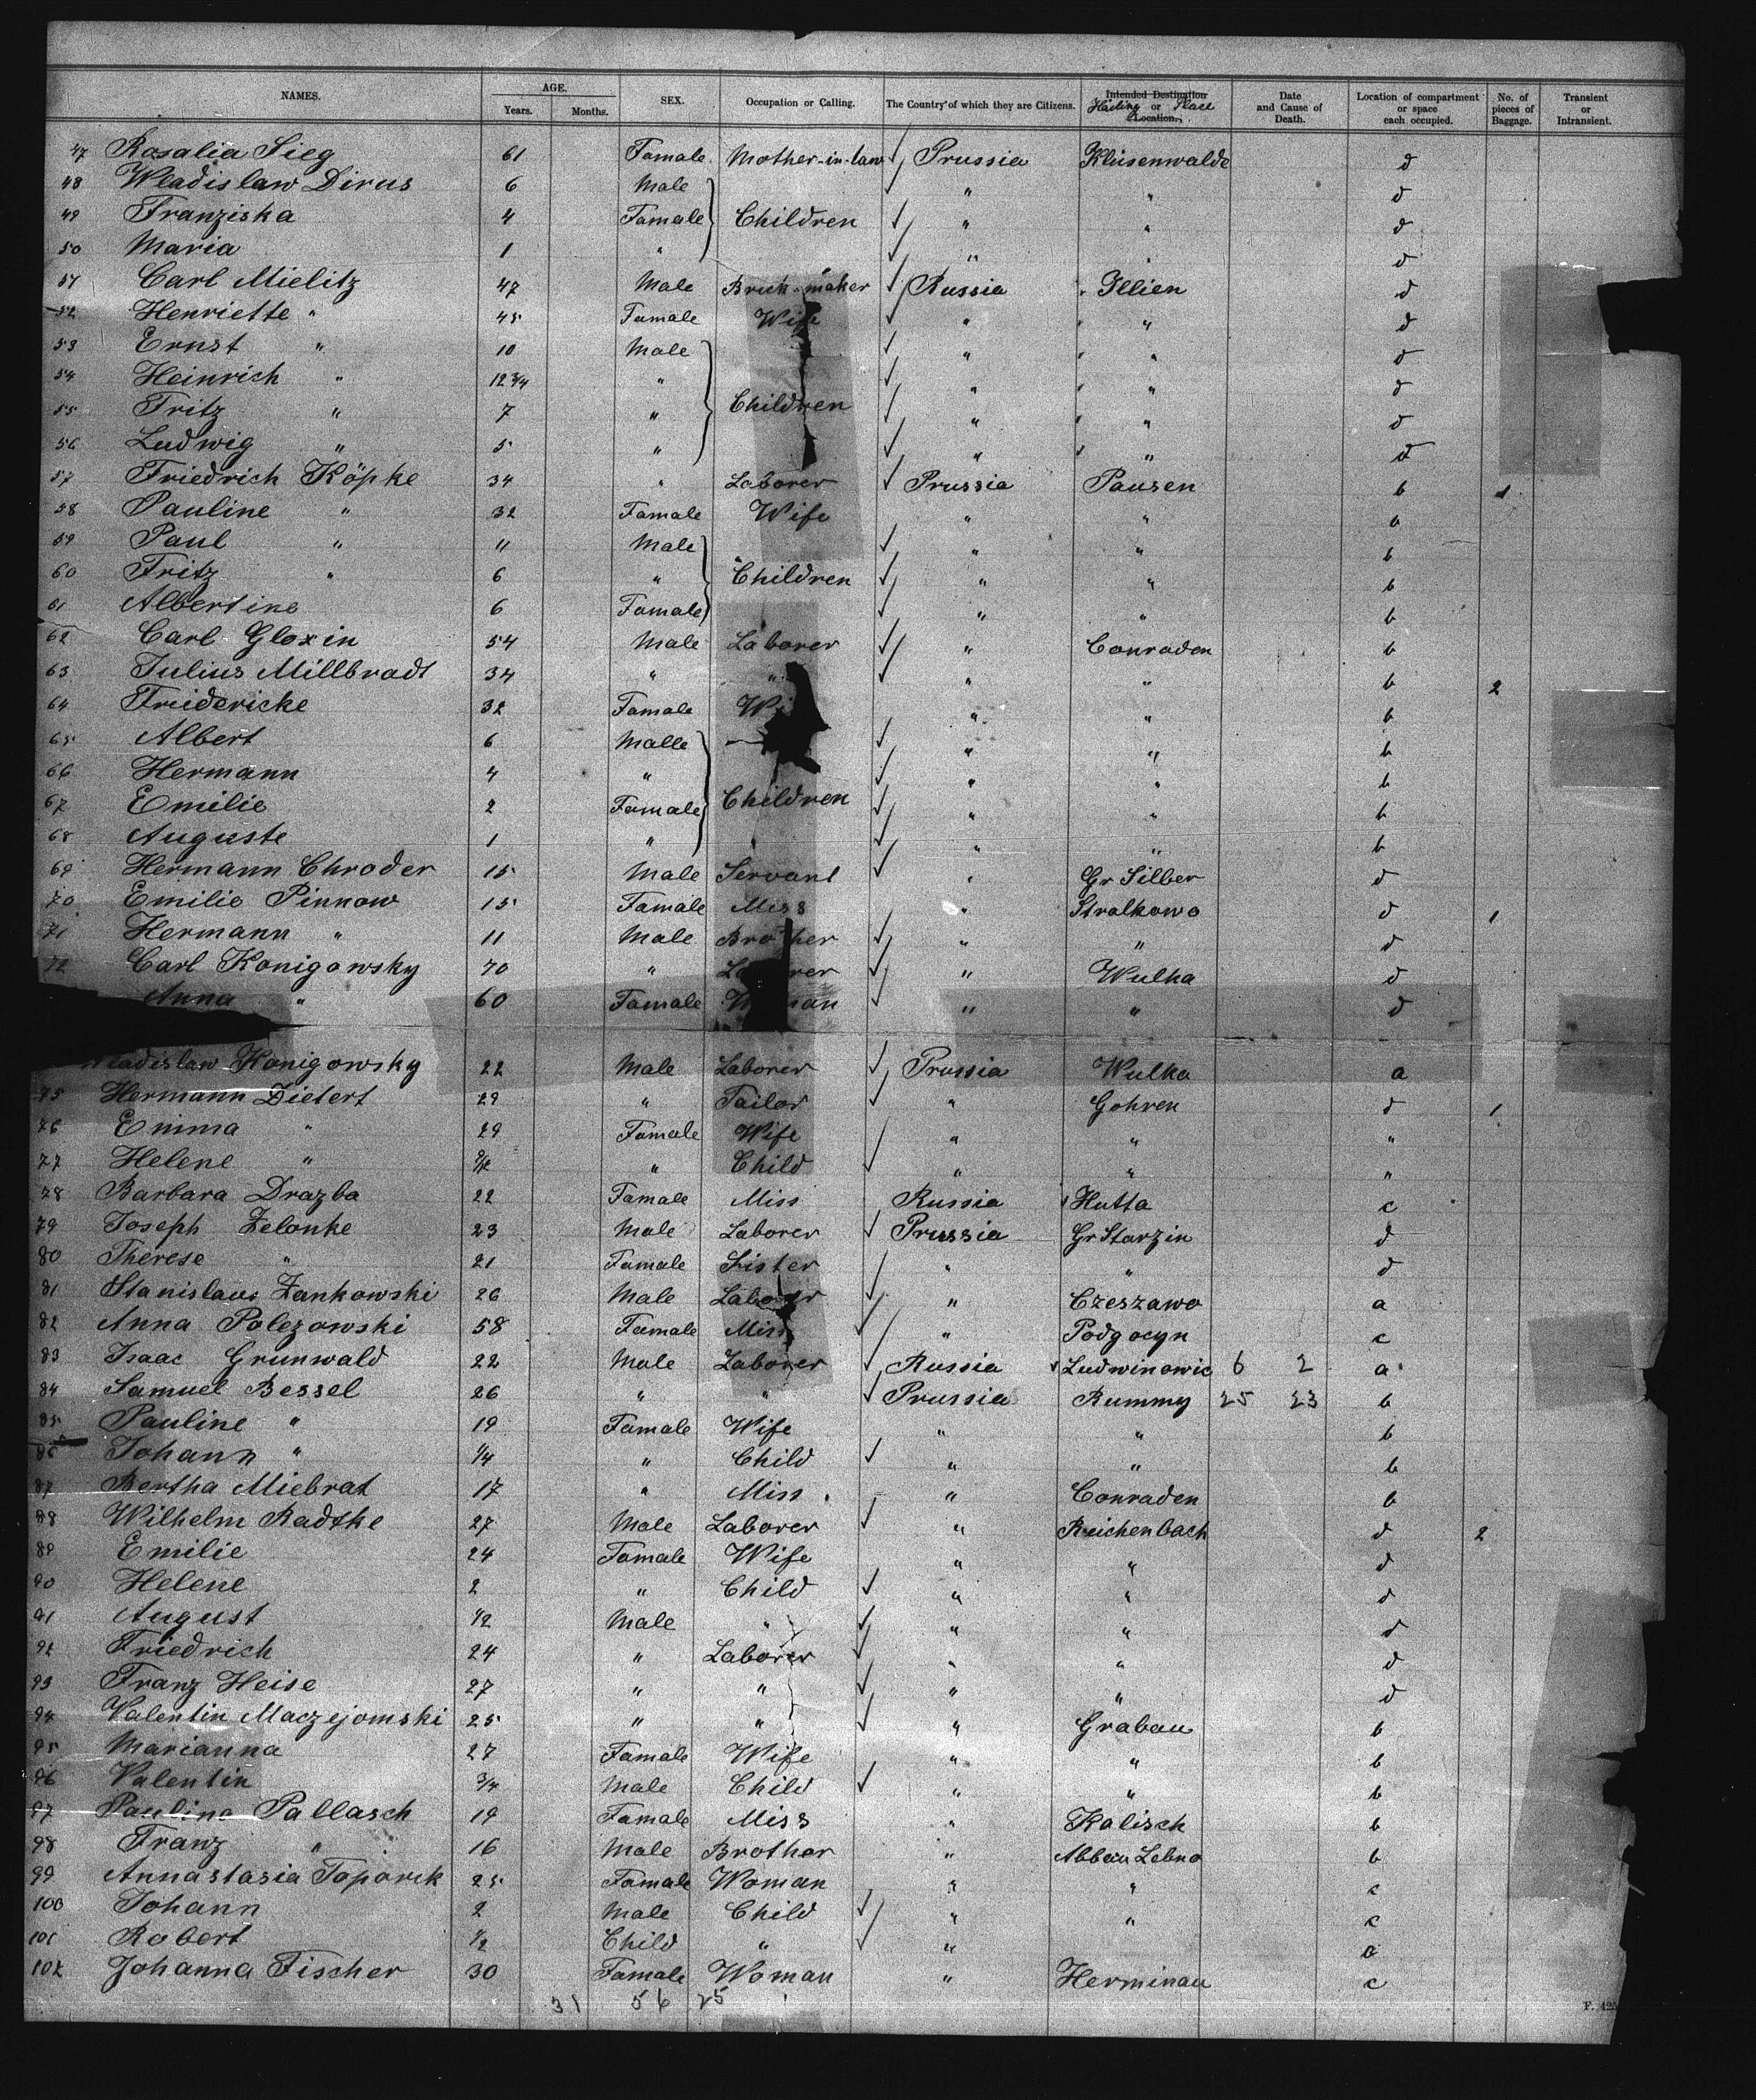 NAMES. AGE. Years. Months. SEX. Occupation or Calling. The Country of which they are Citizens. Intended Destination or Location. Hailing Place Date and Cause of Death. Location of compartment or space each occupied. No. of pieces of Baggage. Transient or Intransient.
47 Rosalia Sieg 61 Famale Mother-in-law Prussia Klüsenwalde d
48 Wladislaw Dirus 6 Male " " d
49 Franziska 4 Famale Children " " d
50 Maria 1 " " " d
51 Carl Mielitz 47 Male Brick-maker Russia Illien d
52 Henriette " 45 Famale Wife " " d
53 Ernst " 10 Male " " d
54 Heinrich " 12 3/4 " " " d
55 Fritz " 7 " Children " " d
56 Ludwig " 5 " " " d
57 Friedrich Köpke 34 " Laborer Prussia Pausen b 1
58 Pauline " 32 Famale Wife " " b
59 Paul " 11 Male " " b
60 Fritz " 6 " Children " " b
61 Albertine 6 Famale " " b
62 Carl Gloxin 54 Male Laborer " Conraden b
63 Julius Millbradt 34 " " " " b 2
64 Friedericke 32 Famale " " b
65 Albert 6 Malle " " b
66 Hermann 4 " " " b
67 Emilie 2 Famale Children " " b
68 Auguste 1 " " " b
69 Hermann Chroder 15 Male Servant " Gr Silber d
70 Emilie Pinnow 15 Famale Miss " Stralkowo d 1
71 Hermann " 11 Male Brother " " d
72 Carl Konigowsky 70 " Laborer " Wulka d
Anna " 60 Famale Woman " " d
Wladislaw Konigowsky 22 Male Laborer Prussia Wulka a
75 Hermann Dietert 29 " Tailor " Gohren d 1
76 Emma " 29 Famale Wife " " "
77 Helene " " Child " " "
78 Barbara Drazba 22 Famale Miss Russia Hutta c
79 Joseph Zelonke 23 Male Laborer Prussia Gr Starzin d
80 Therese " 21 Famale Sister " " d
81 Stanislaus Zankowski 26 Male Laborer " Czeszawo a
82 Anna Polezowski 58 Famale Miss " Podgocyn c
83 Isaac Grunwald 22 Male Laborer Russia Ludwinowic 6 2 a
84 Samuel Bessel 26 " " Prussia Rummy 25 23 b
85 Pauline " 19 Famale Wife " " b
86 Johann " 1/4 " Child " " b
87 Bertha Miebrat 17 " Miss " Conraden b
88 Wilhelm Radtke 27 Male Laborer " Reichenbach d 2
89 Emilie 24 Famale Wife " " d
90 Helene 2 " Child " " d
91 August 1/2 Male " " " d
92 Friedrich 24 " Laborer " " d
93 Franz Heise 27 " " " " d
94 Valentin Maczejomski 25 " " " Grabau b
95 Marianna 27 Famale Wife " " b
96 Valentin 3/4 Male Child " " b
97 Pauline Pallasch 19 Famale Miss " Kalisch b
98 Franz " 16 Male Brother " Abbau Lebno b
99 Annastasia Toporek 25 Famale Woman " " c
100 Johann 2 Male Child " " c
101 Robert 1/2 Child " " a
102 Johanna Fischer 30 Famale Woman " Herminau c
31 56 25
F. 425